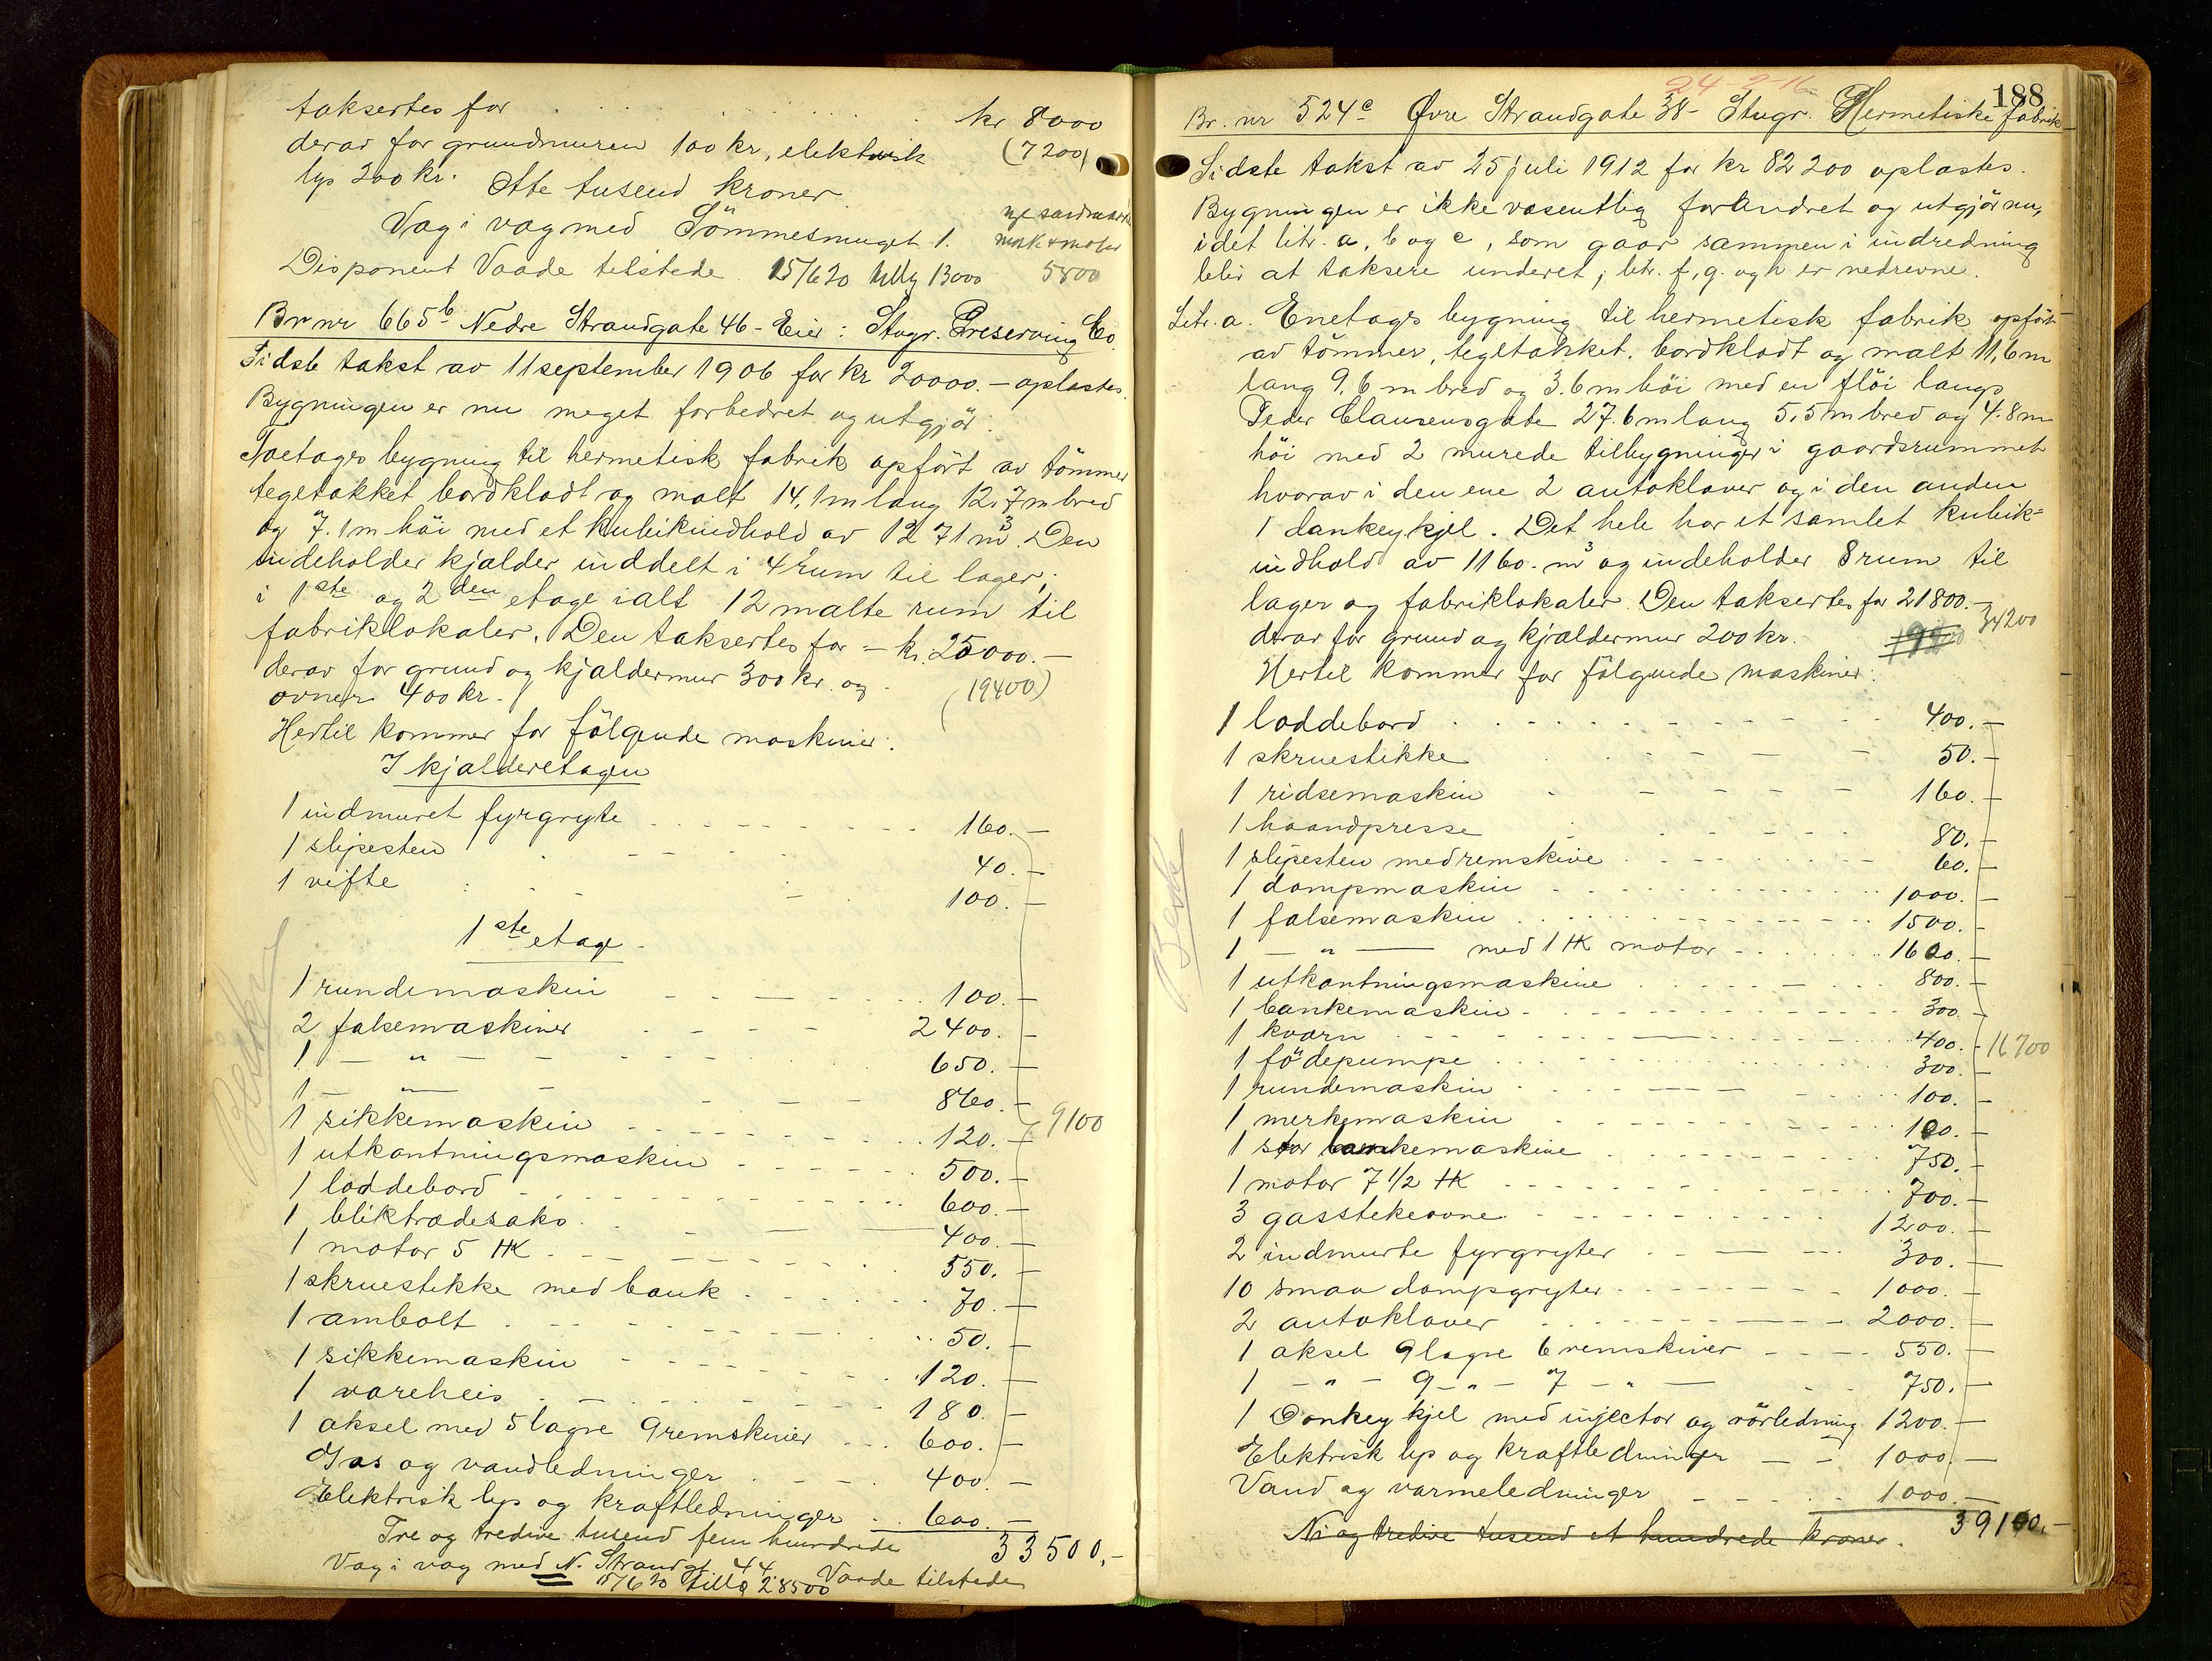 taksertes for . . . . . kr 8000
derav for grundmuren 100 kr, elektrisk (7200)
lys 200 kr. Otte tusend kroner
Væg i væg med Sömmesmuget 1.
Disponent Vaade tilstede. 15/6 20 tillg 13000 5800
Br nr 665b Nedre Strandgate 46 - Eier: Stvgr. Preserving Co.
Sidste takst av 11 september 1906 for kr 20000.- oplæstes.
Bygningen er nu meget forbedret og utgjör:
Toetages bygning til hermetisk fabrik opfört av tömmer
tegltækket bordklædt og malt 14,1 m lang 12,7 m bred
og 7.1 m höi med et kubikindhold av 1271 m³. Den
indeholder kjælder inddelt i 4 rum til lager,
i 1ste og 2den etage ialt 12 malte rum til
fabriklokaler. Den taksertes for - kr. 25000.-
derav for grund og kjældermur 300 kr. og
ovner 400 kr. (19400)
Hertil kommer for fölgende maskiner:
I kjælderetagen
1 indmuret fyrgryte 160.-
1 slipesten 40.-
1 vifte 100.-
1ste etage
1 rundemaskin 100.-
2 falsemaskiner 2400.-
1 - " - 650.-
1 - " - 860.-
1 sikkemaskin 120.- 9100
1 utkantningsmaskin 500.-
1 loddebord 600.-
1 bliktrædesaks 400.-
1 motor 5 HK 550.-
1 skruestikke med bænk 70.-
1 ambolt 50.-
1 sikkemaskin 120.-
1 vareheis 180.-
1 aksel med 5 lagre 9 remskiver 600.-
Gas og vandledninger 400.-
Elektrisk lys og kraftledninger 600.-
Tre og tredive tusend fem hundrede 33500,-
Væg i væg med N. Strandgt. 44. Vaade tilstede
15/6 20 tillg 28500
24-2-16
188
Br. nr 524c Övre Strandgate 38 - Stvgr. Hermetiske fabrik
Sidste takst av 25 juli 1912 for kr 82200 oplæstes.
Bygningen er ikke væsentlig forandret og utgjör nu,
idet litr. a, b og c, som gaar sammen i indredning
blir at taksere underet, litr. f, g. og h er nedrevne.
Litr. a. Enetages bygning til hermetisk fabrik opfört
av tömmer, tegltækket, bordklædt og malt 11,6 m
lang 9,6 m bred og 3.6 m höi med en flöi langs
Peder Clausensgate 27.6 m lang 5,5 m bred og 4.8 m
höi med 2 murede tilbygninger i gaardsrummet
hvorav i den ene 2 autoklaver og i den anden
1 dankeykjel. Det hele har et samlet kubik=
indhold av 1160. m³ og indeholder 8 rum til
lager og fabriklokaler. Den taksertes for 21800.-
derav for grund og kjældermur 200 kr. 34200
Hertil kommer for fölgende maskiner:
1 loddebord 400.-
1 skruestikke 50.-
1 ridsemaskin 160.-
1 haandpresse 80.-
1 slipesten med remskive 60.-
1 dampmaskin 1000.-
1 falsemaskin 1500.-
1 - " - med 1 HK motor 1600.-
1 utkantningsmaskine 800.-
1 bankemaskin 300.-
1 kværn 400.- 16700
1 födepumpe 300.-
1 rundemaskin 100.-
1 merkemaskin 100.-
1 stor bankemaskine 750.-
1 motor 7 1/2 HK 700.-
3 gasstekeovne 1200.-
2 indmurte fyrgryter 300.-
10 smaa dampgryter 1000.-
2 autoklaver 2000.-
1 aksel 9 lagre 6 remskiver 550.-
1 - " - 9 - " - 7 - " - 750.-
1 Donkey kjel med injector og rörledning 1200.-
Elektrisk lys og kraftledninger 1000.-
Vand og varmeledninger 1000.-
Ni og tredive tusend et hundrede kroner. 39100.-